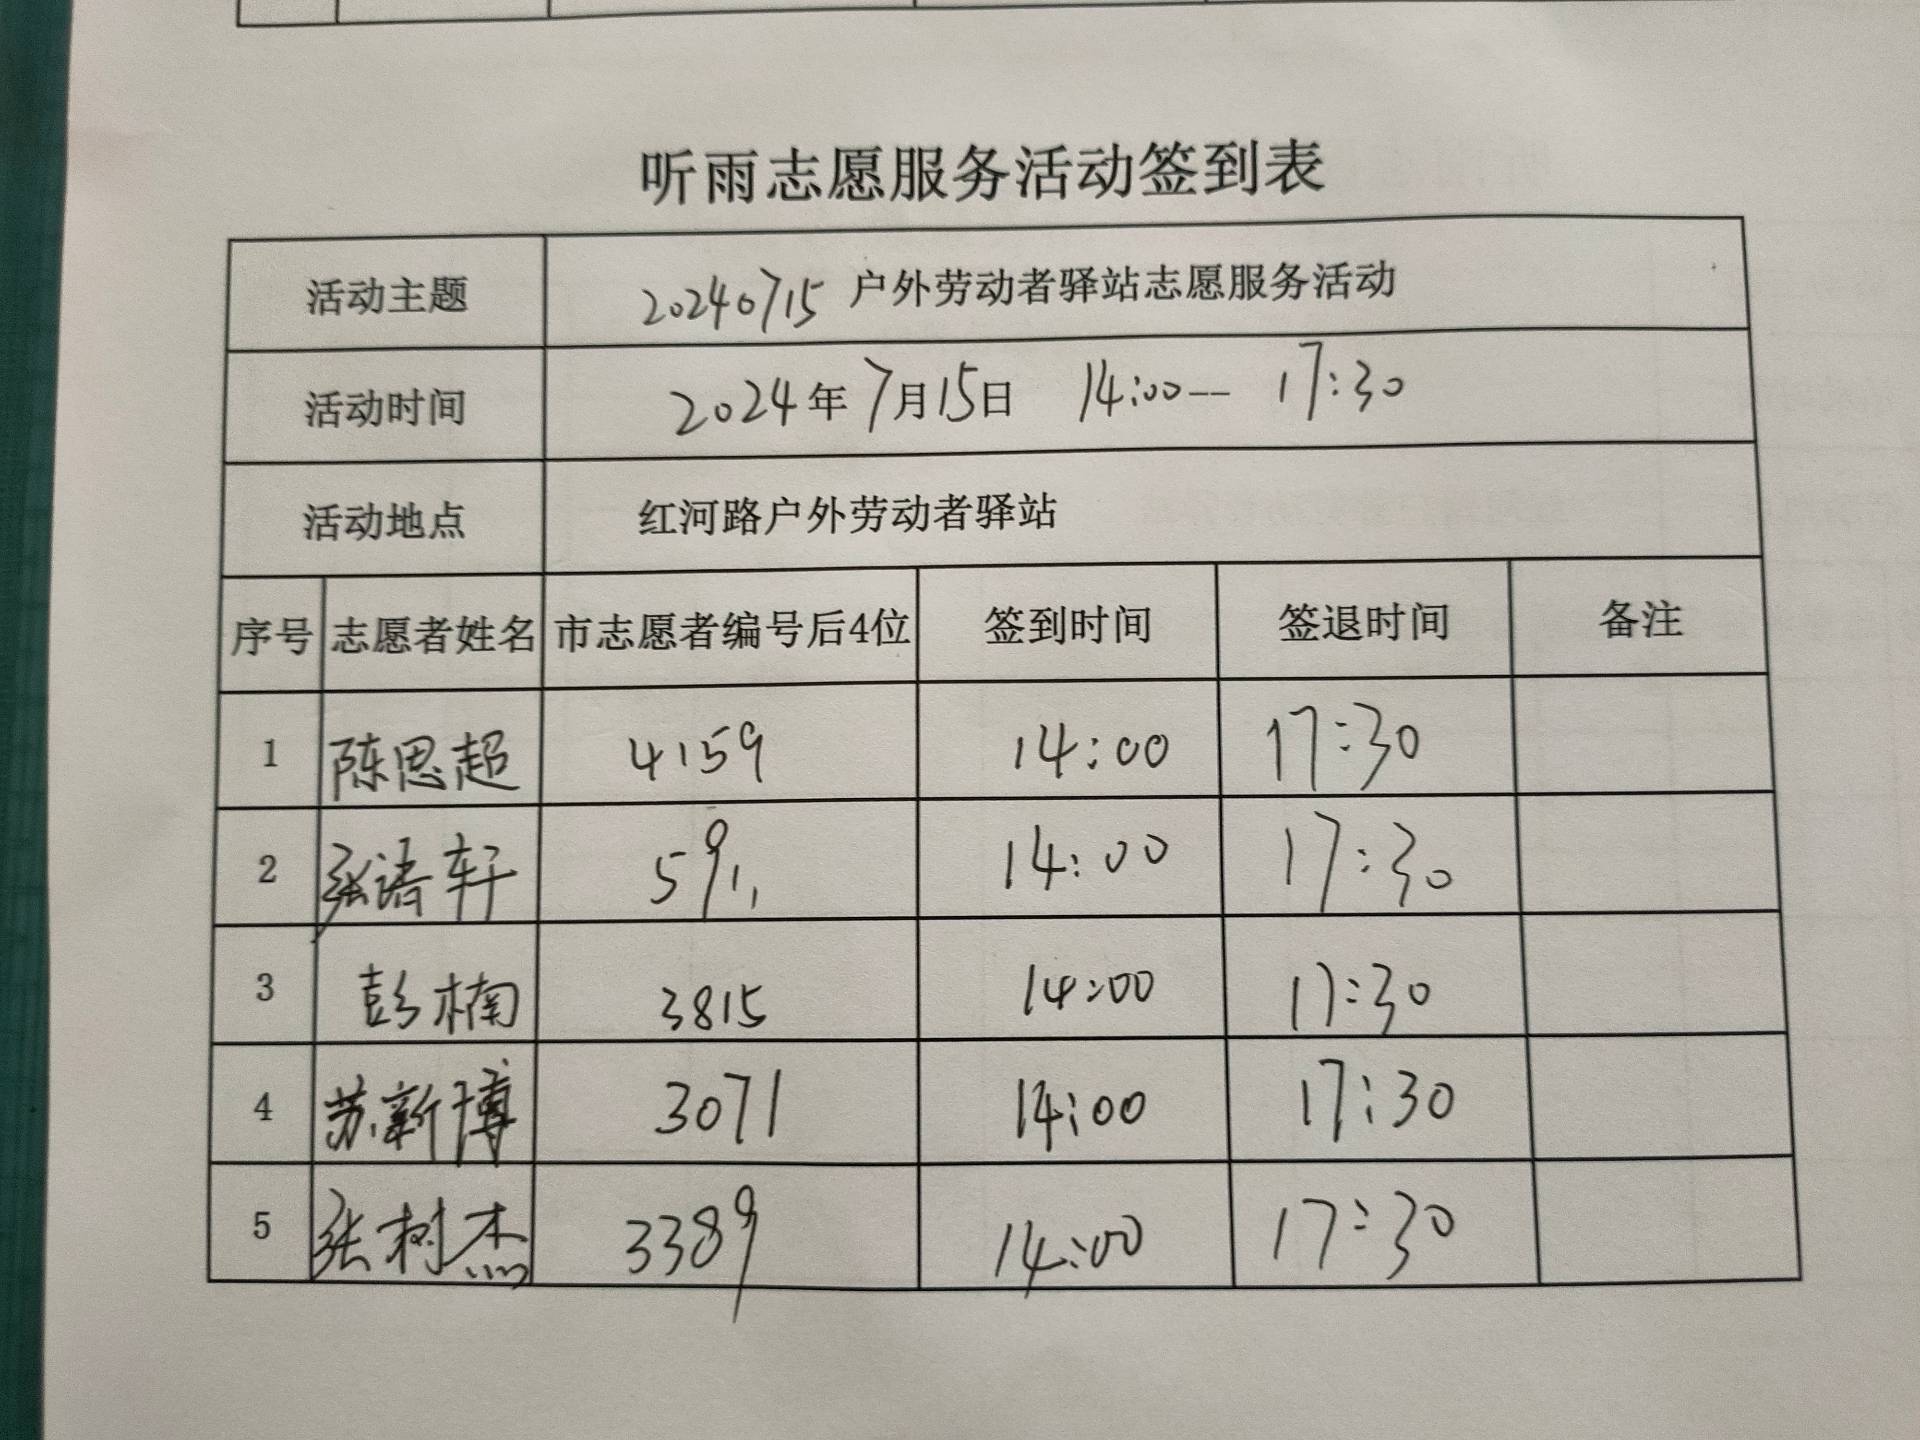 听雨志愿服务活动签到表
活动主题 20240715 户外劳动者驿站志愿服务活动
活动时间 2024年7月15日 14:00-- 17:30
活动地点 红河路户外劳动者驿站
序号 志愿者姓名 市志愿者编号后4位 签到时间 签退时间 备注
1 陈思超 4159 14:00 17:30
2 张诸轩 5911 14:00 17:30
3 彭楠 3815 14:00 17:30
4 苏新博 3071 14:00 17:30
5 张树杰 3389 14:00 17:30